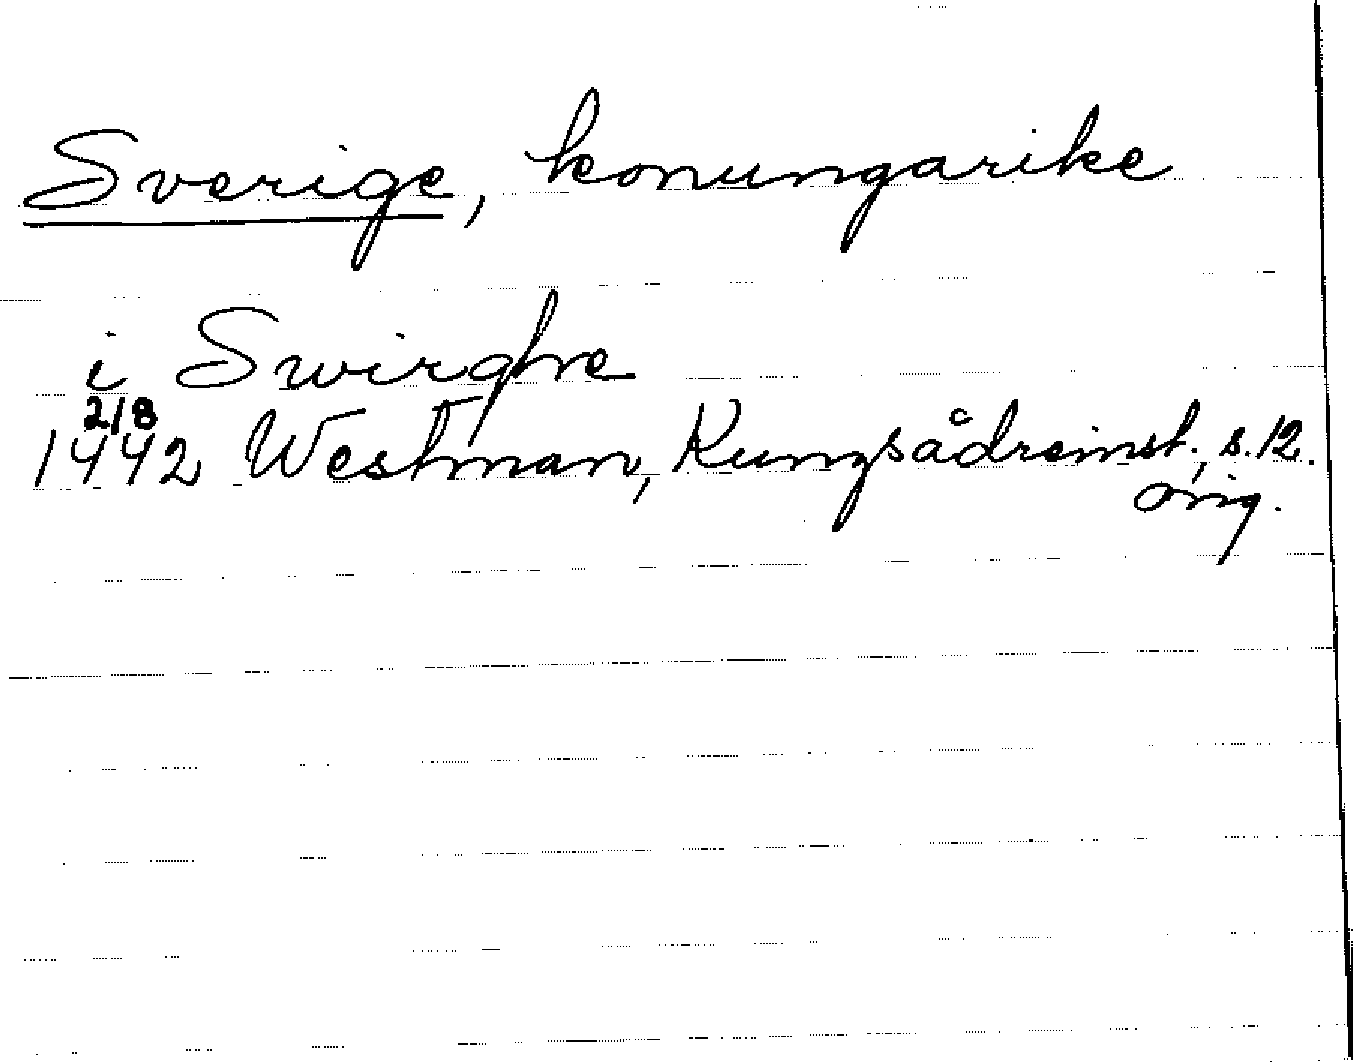 Sverige, konungarike
i Swirghe
2/8
1442 Westman, Kungsådreinst., s. 12.
orig.